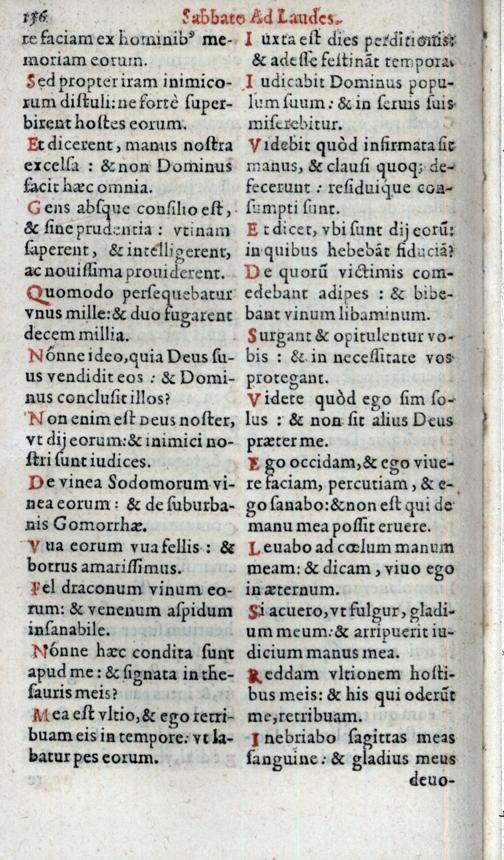 156. Sabbato Ad Laudes.
re faciam ex hominibꝰ me-
moriam eorum.
Sed propter iram inimico-
rum distuli: ne fortè super-
birent hostes eorum.
Et dicerent, manus nostra
excelsa : & non Dominus
facit hæc omnia.
Gens absque consilio est,
& sine prudentia : vtinam
saperent, & intelligerent,
ac nouissima prouiderent.
Quomodo persequebatur
vnus mille: & duo fugarent
decem millia.
Nónne ideo, quia Deus su-
us vendidit eos : & Domi-
nus conclusit illos?
Non enim est Deus noster,
vt dij eorum: & inimici no-
stri sunt iudices.
De vinea Sodomorum vi-
nea eorum : & de suburba-
nis Gomorrhæ.
Vua eorum vua fellis : &
botrus amarissimus.
Fel draconum vinum eo-
rum: & venenum aspidum
insanabile.
Nónne hæc condita sunt
apud me : & signata in the-
sauris meis?
Mea est vltio, & ego retri-
buam eis in tempore: vt la-
batur pes eorum.
Iuxta est dies perditionis:
& adesse festināt tempora.
Iudicabit Dominus popu-
lum suum : & in seruis suis
miserebitur.
Videbit quòd infirmata sit
manus, & clausi quoqꝫ de-
fecerunt : residuique con-
sumpti sunt.
Et dicet, vbi sunt dij eorū:
in quibus hebebāt fiduciā?
De quorū victimis com-
edebant adipes : & bibe-
bant vinum libaminum.
Surgant & opitulentur vo-
bis : & in necessitate vos
protegant.
Videte quòd ego sim so-
lus : & non sit alius Deus
præter me.
Ego occidam, & ego viue-
re faciam, percutiam, & e-
go sanabo: & non est qui de
manu mea possit eruere.
Leuabo ad cœlum manum
meam: & dicam, viuo ego
in æternum.
Si acuero, vt fulgur, gladi-
um meum: & arripuerit iu-
dicium manus mea.
Reddam vltionem hosti-
bus meis: & his qui oderūt
me, retribuam.
Inebriabo sagittas meas
sanguine : & gladius meus
deuo-